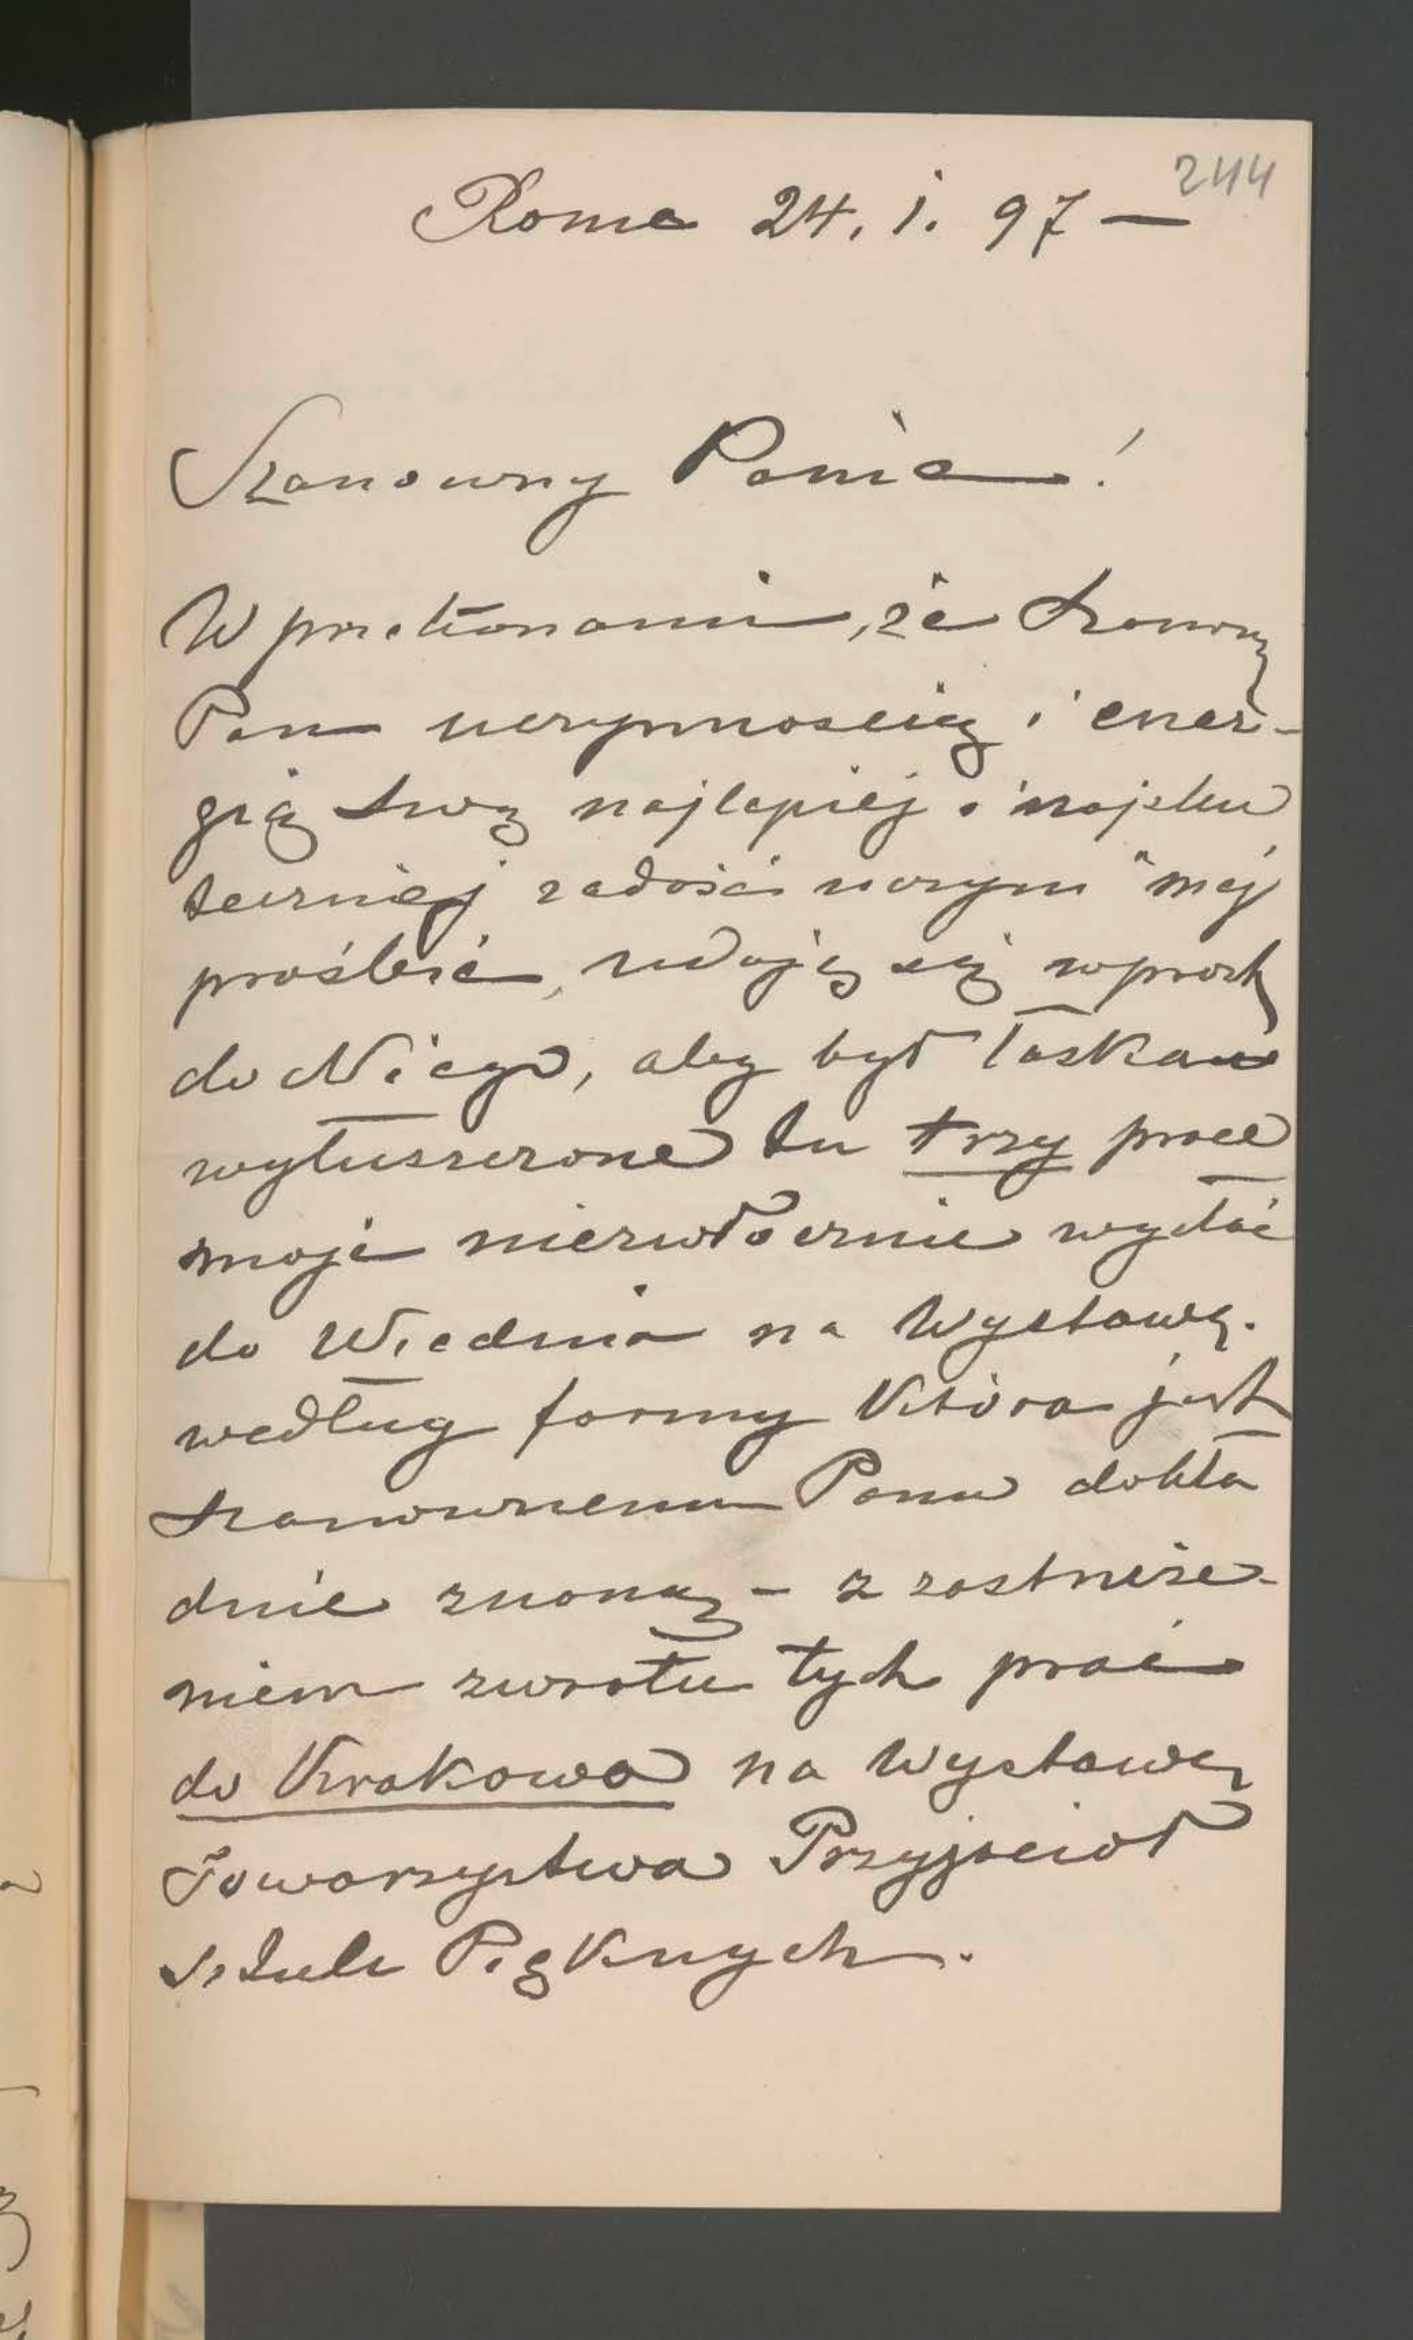 244
Roma 24. i. 97 —
Szanowny Panie!
W przekonaniu, że Szanowny
Pan uczynnością i ener-
gią swą najlepiej i najsku
teczniej zadość uczyni mej
prośbie, udaję się wprost
do Niego, aby był łaskaw
wyłuszczone tu trzy prace
moje niezwłocznie wysłać
do Wiednia na Wystawę.
według formy która jest
Szanownemu Panu dokła
dnie znaną - z zastrzeże-
niem zwrotu tych prac
do Krakowa na Wystawę
Towarzystwa Przyjaciół
Sztuk Pięknych.